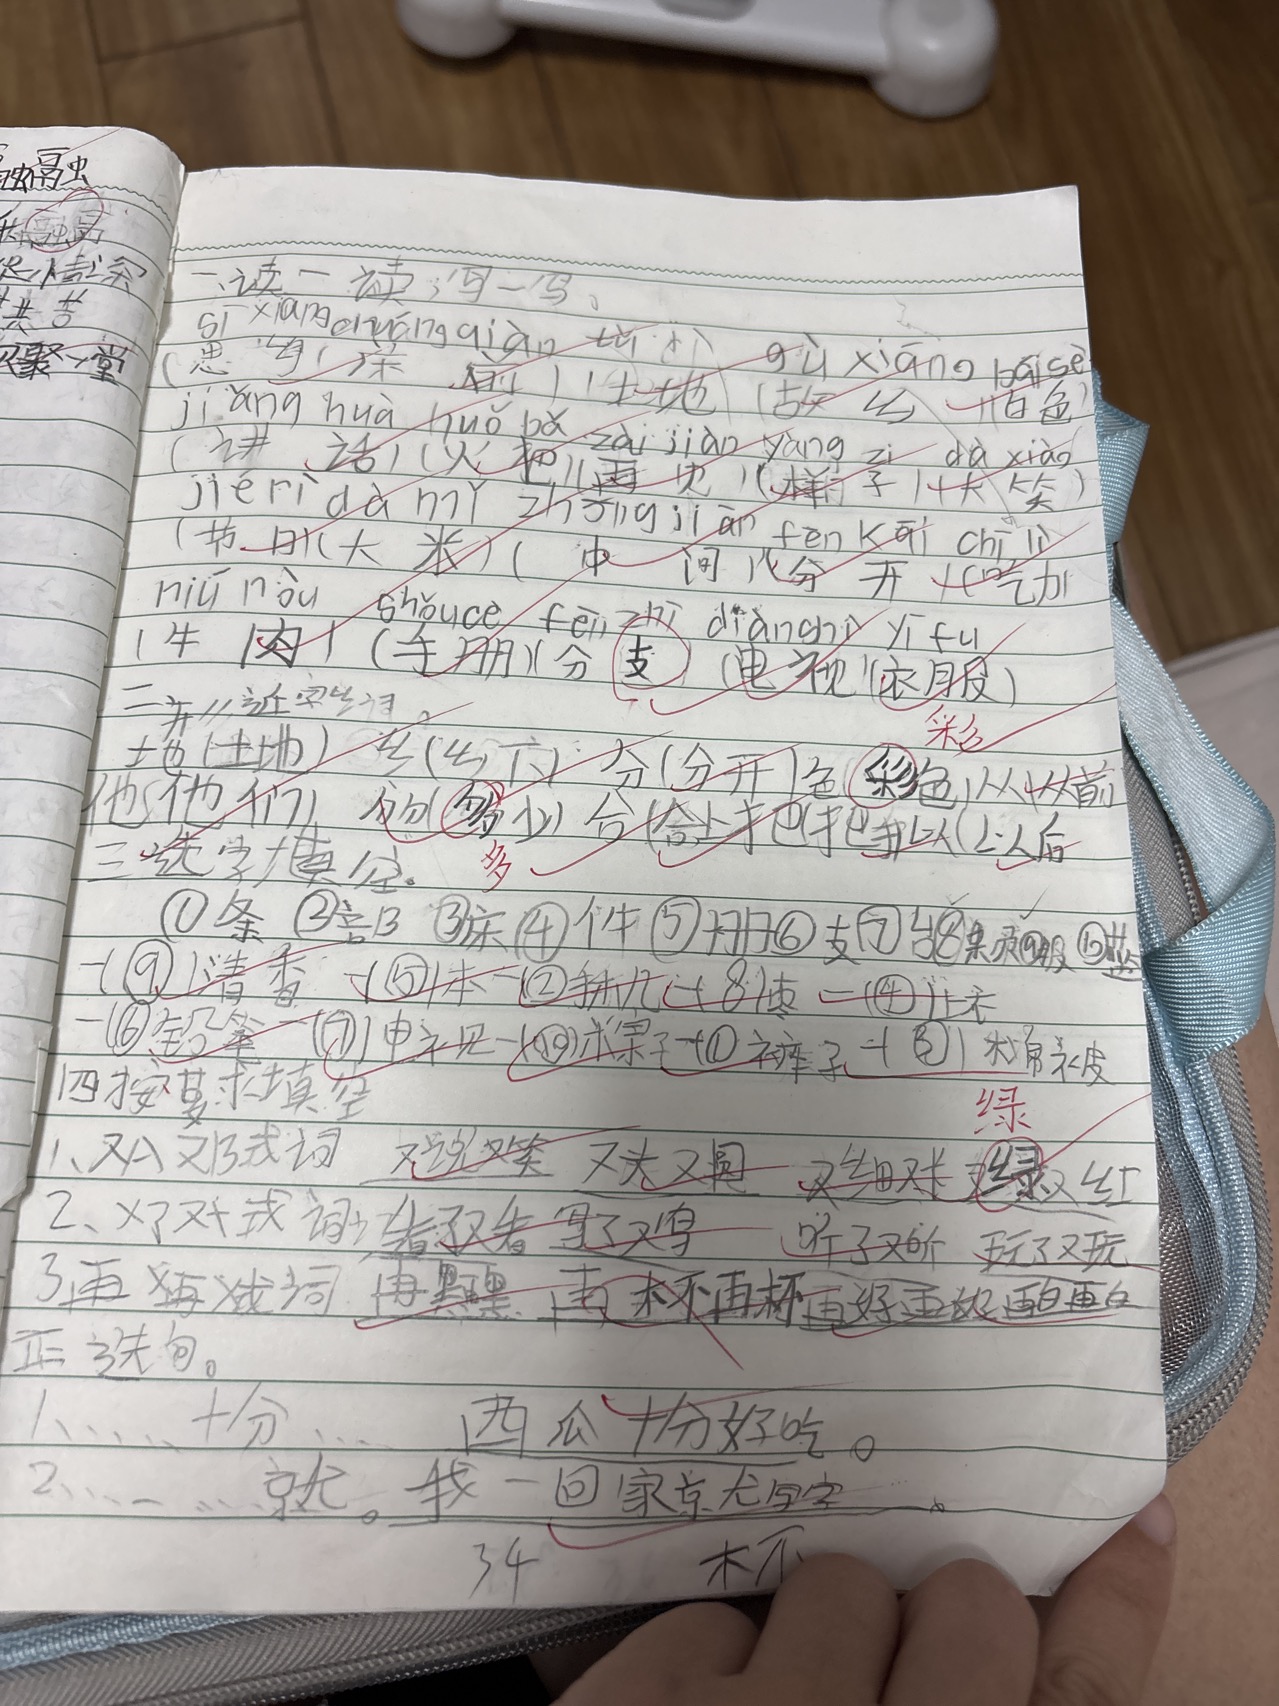 融
聚一堂
一读一读写一写。
sī xiāng chuáng qián tǔ dì gù xiāng bái sè
(思乡)(床前)(土地)(故乡)(白色)
jiǎng huà huǒ bǎ zài jiàn yàng zi dà xiào
(讲话)(火把)(再见)(样子)(大笑)
jié rì dà mǐ zhōng jiān fēn kāi chī lì
(节日)(大米)(中间)(分开)(吃力
niú ròu shǒu cè fēn zhī diàn shì yī fu
(牛肉)(手册)(分支)(电视)(衣服)
二、形近字组词。
彩
地(土地) 乡(乡下) 分(分开)色(彩色)从(从前
他(他们) 多(多少) 合(合上)把(把手)以(以后
多
三选字填空。
①条 ②部 ③床 ④件 ⑤册 ⑥支 ⑦台 ⑧束 ⑨股 ⑩
一(⑨)清香 一(⑤)本 一(②)手机 一(8)花 一(④)上衣
一(⑥)铅笔 一(⑦)电视 一(⑩)果子 一(①)裤子 一(③)棉被
四按要求填空
绿
1、又A又B式词 又说又笑 又大又圆 又细又长 又绿又红
2、X了又X式词 看了又看 写了又写 听了又听 玩了又玩
3、再X再X式词 再黑再黑 再杯再杯 再好再好 再白再白
五造句。
1、…… 十分 …… 西瓜十分好吃。
2、…… 就。我一回家就写字。
34 杯